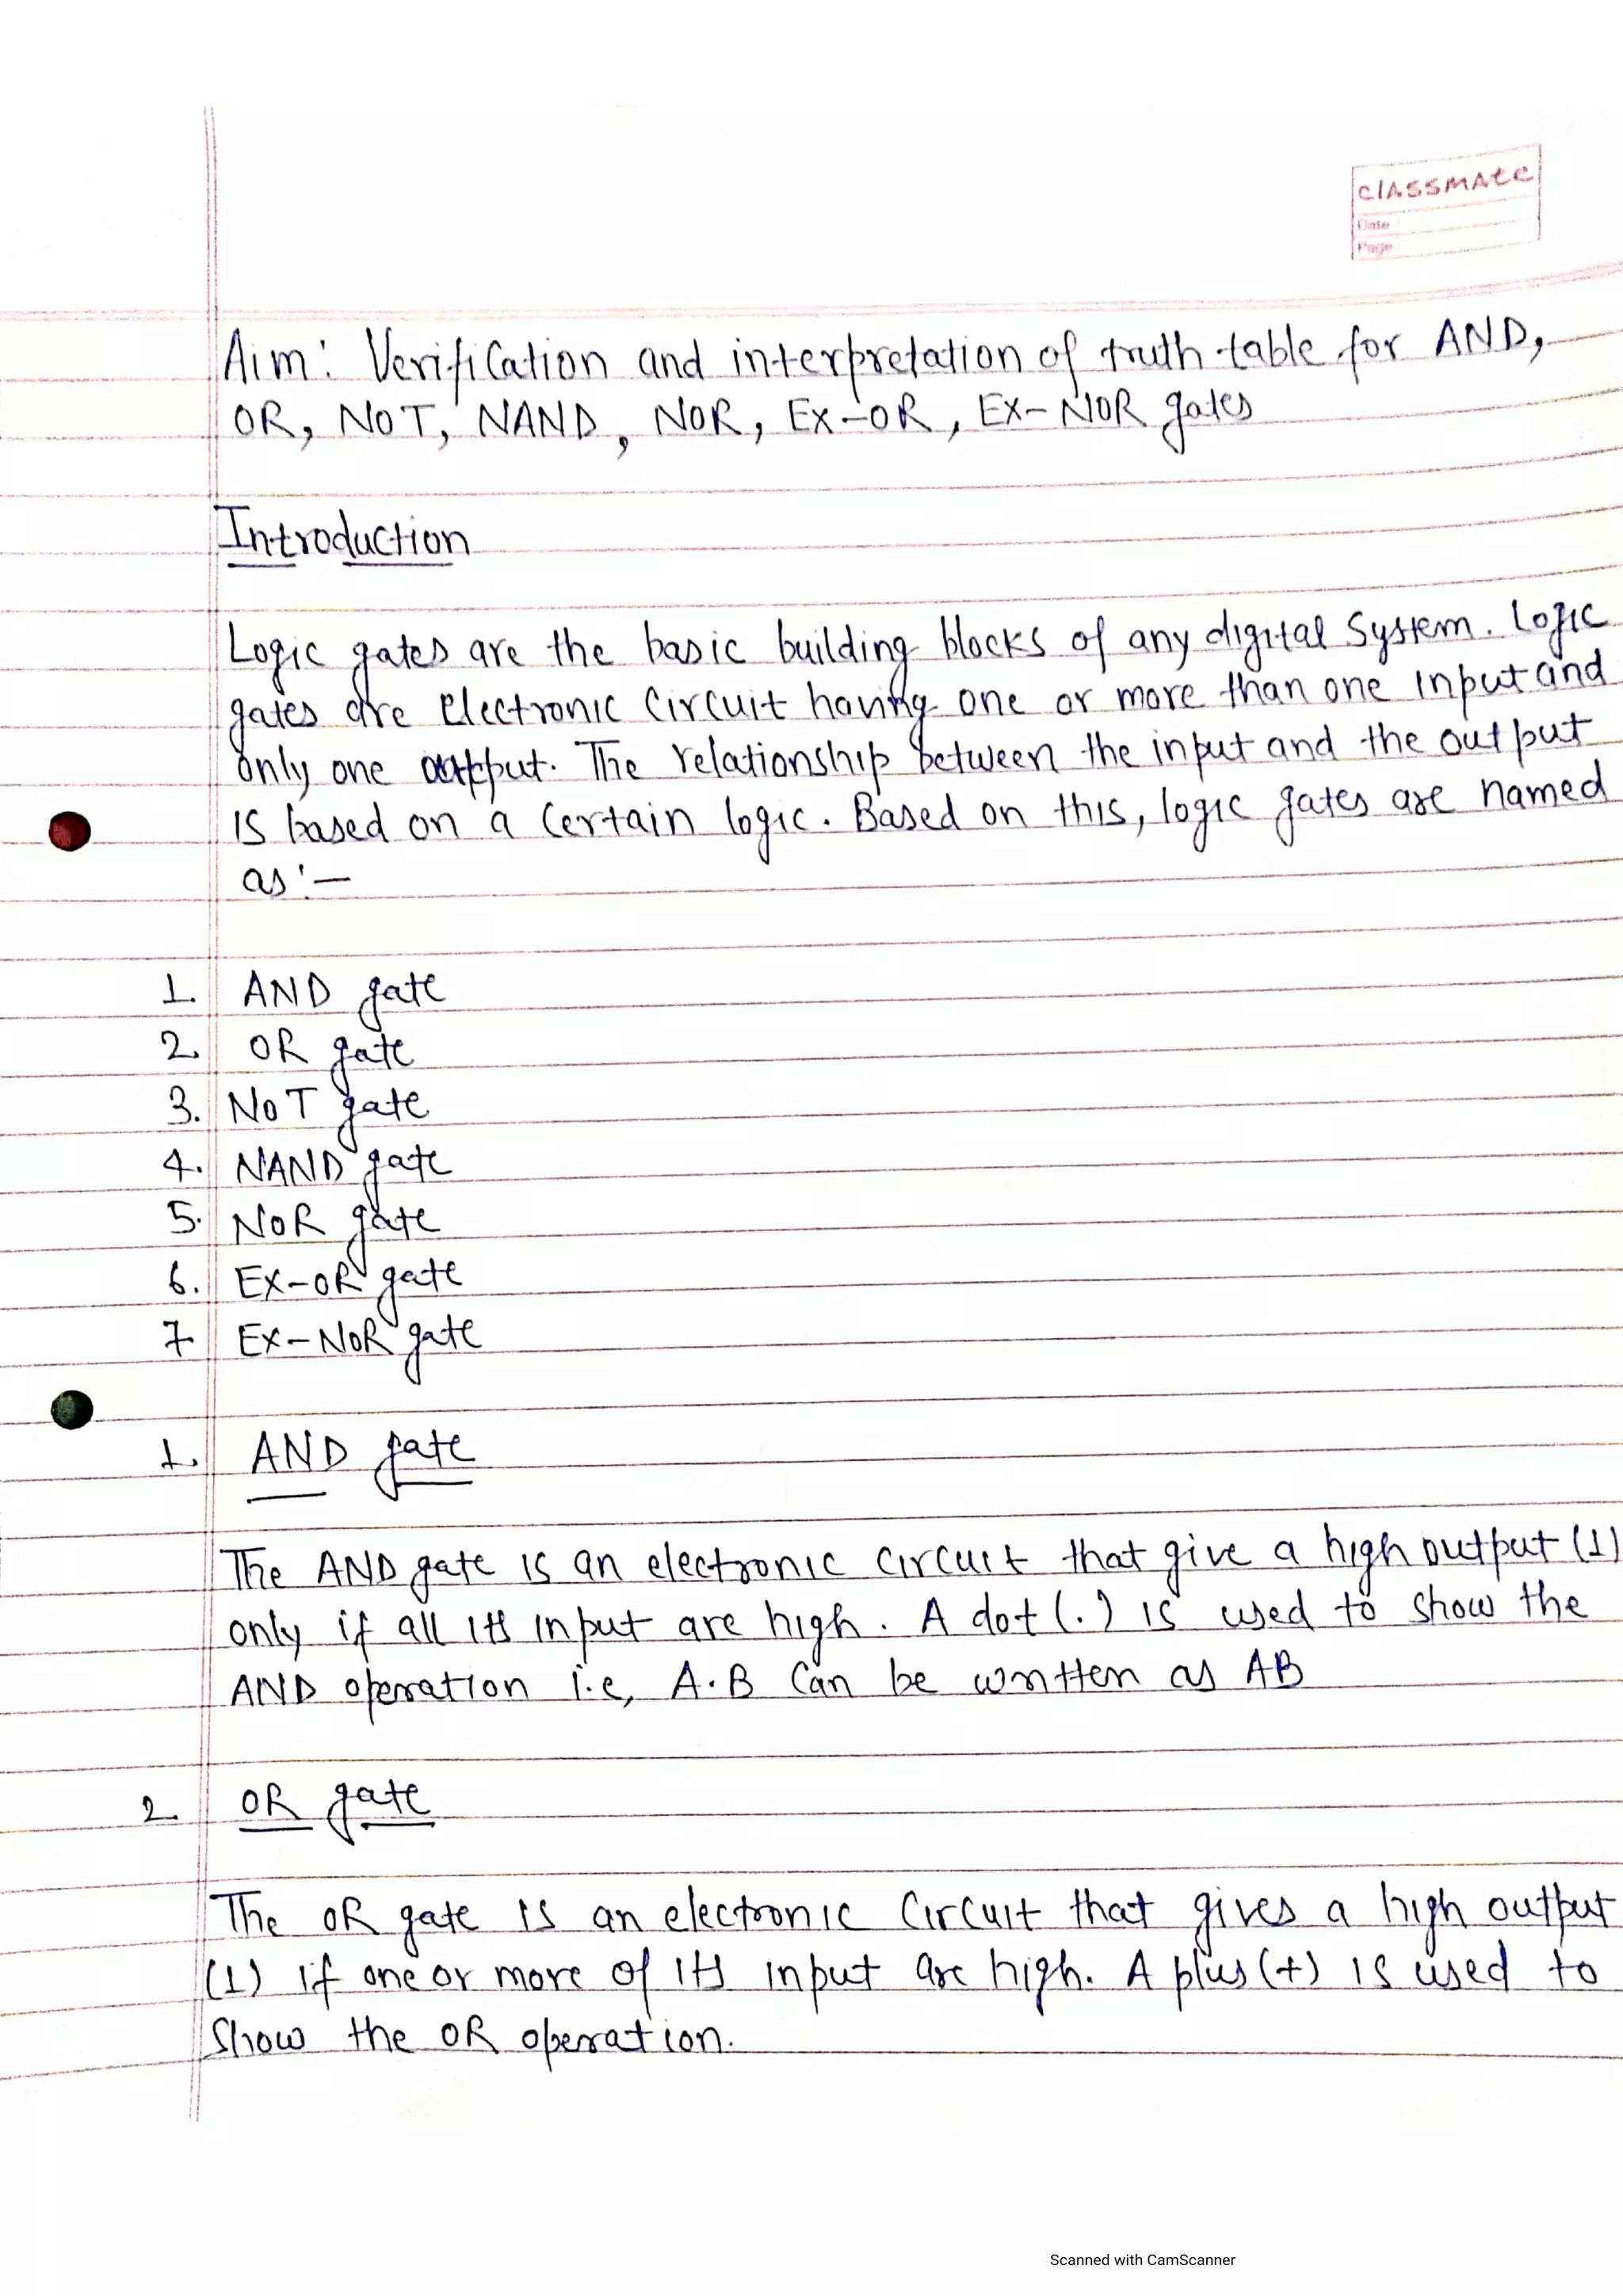 classmate
Date
Page
Aim: Verification and interpretation of truth table for AND,
OR, NOT, NAND, NOR, EX-OR, EX-NOR gates
Introduction
Logic gates are the basic building blocks of any digital System. Logic
gates are electronic Circuit having one or more than one input and
only one output. The relationship between the input and the output
is based on a Certain logic. Based on this, logic gates are named
as:-
1. AND gate
2. OR gate
3. NOT gate
4. NAND gate
5. NOR gate
6. EX-OR gate
7 EX-NOR gate
1. AND gate
The AND gate is an electronic circuit that give a high output (1)
only if all its input are high. A dot (.) is used to show the
AND operation i.e, A.B Can be written as AB
2. OR gate
The OR gate is an electronic Circuit that gives a high output
(1) if one or more of its input are high. A plus (+) is used to
Show the OR operation.
Scanned with CamScanner